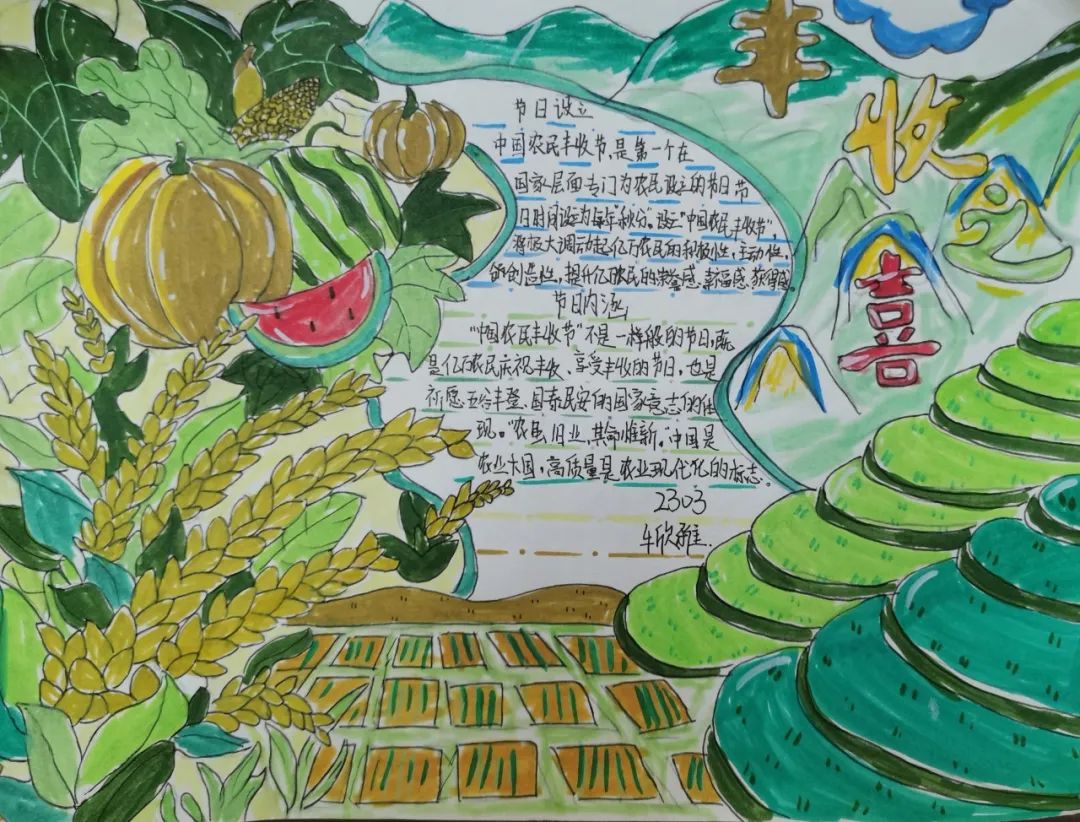 丰
收
之
喜
节日设立
中国农民丰收节,是第一个在
国家层面专门为农民设立的节日节
日时间设为每年"秋分"。设立"中国农民丰收节",
将极大调动起亿万农民的积极性,主动性,
创造性,提升亿万农民的荣誉感、幸福感、获得感。
节日内涵
"中国农民丰收节"不是一样般的节日,既
是亿万农民庆祝丰收、享受丰收的节日,也是
祈愿五谷丰登、国泰民安的国家意志的体
现。"农虽旧业,其命惟新。中国是
农业大国,高质量是农业现代化的标志。
2303